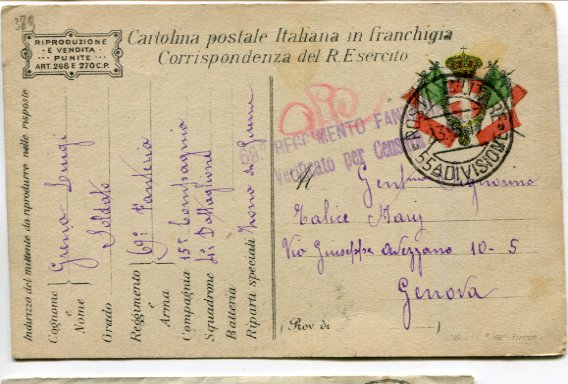 389
RIPRODUZIONE
E VENDITA
PUNITE
ART. 268 E 270 C.P.
Cartolina postale Italiana in franchigia
Corrispondenza del R. Esercito
69° REGGIMENTO FANTERIA
Verificato per Censura
POSTA MILITARE
55A DIVISIONE
Indirizzo del mittente da riprodurre nelle risposte
Cognome e Nome Luigi
Grado Soldato
Reggimento e Arma 69° Fanteria
Compagnia 15ª Compagnia
Squadrone Battaglione
Batteria
Riparti speciali Zona di Guerra
Talice Mary
Via Giuseppe Avezzano 10-5
Genova
(Prov. di )